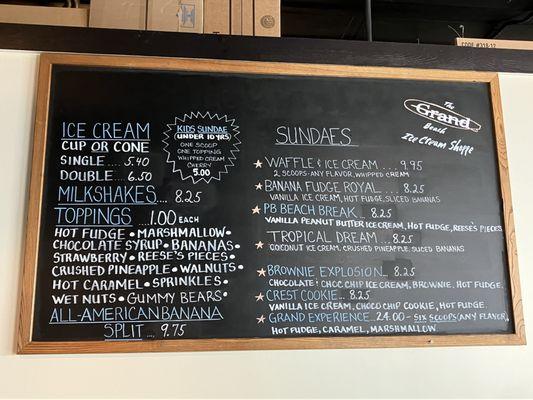 ICE CREAM
CUP OR CONE
SINGLE .... 5.40
DOUBLE .... 6.50
MILKSHAKES .... 8.25
TOPPINGS ... 1.00 EACH
HOT FUDGE • MARSHMALLOW •
CHOCOLATE SYRUP • BANANAS •
STRAWBERRY • REESE'S PIECES •
CRUSHED PINEAPPLE • WALNUTS •
HOT CARAMEL • SPRINKLES •
WET NUTS • GUMMY BEARS •
ALL-AMERICAN BANANA
SPLIT ... 9.75
KIDS SUNDAE
(UNDER 10 YRS)
ONE SCOOP
ONE TOPPING
WHIPPED CREAM
CHERRY
5.00
The
Grand
Beach
Ice Cream Shoppe
SUNDAES
WAFFLE & ICE CREAM .... 9.95
2 SCOOPS: ANY FLAVOR, WHIPPED CREAM
BANANA FUDGE ROYAL ... 8.25
VANILLA ICE CREAM, HOT FUDGE, SLICED BANANAS
PB BEACH BREAK .. 8.25
VANILLA PEANUT BUTTER ICE CREAM, HOT FUDGE, REESE'S PIECES
TROPICAL DREAM ... 8.25
COCONUT ICE CREAM, CRUSHED PINEAPPLE, SLICED BANANAS
BROWNIE EXPLOSION .. 8.25
CHOCOLATE & CHOC CHIP ICE CREAM, BROWNIE, HOT FUDGE.
CREST COOKIE .. 8.25
VANILLA ICE CREAM, CHOCO CHIP COOKIE, HOT FUDGE.
GRAND EXPERIENCE .. 24.00 - SIX SCOOPS (ANY FLAVOR)
HOT FUDGE, CARAMEL, MARSHMALLOW